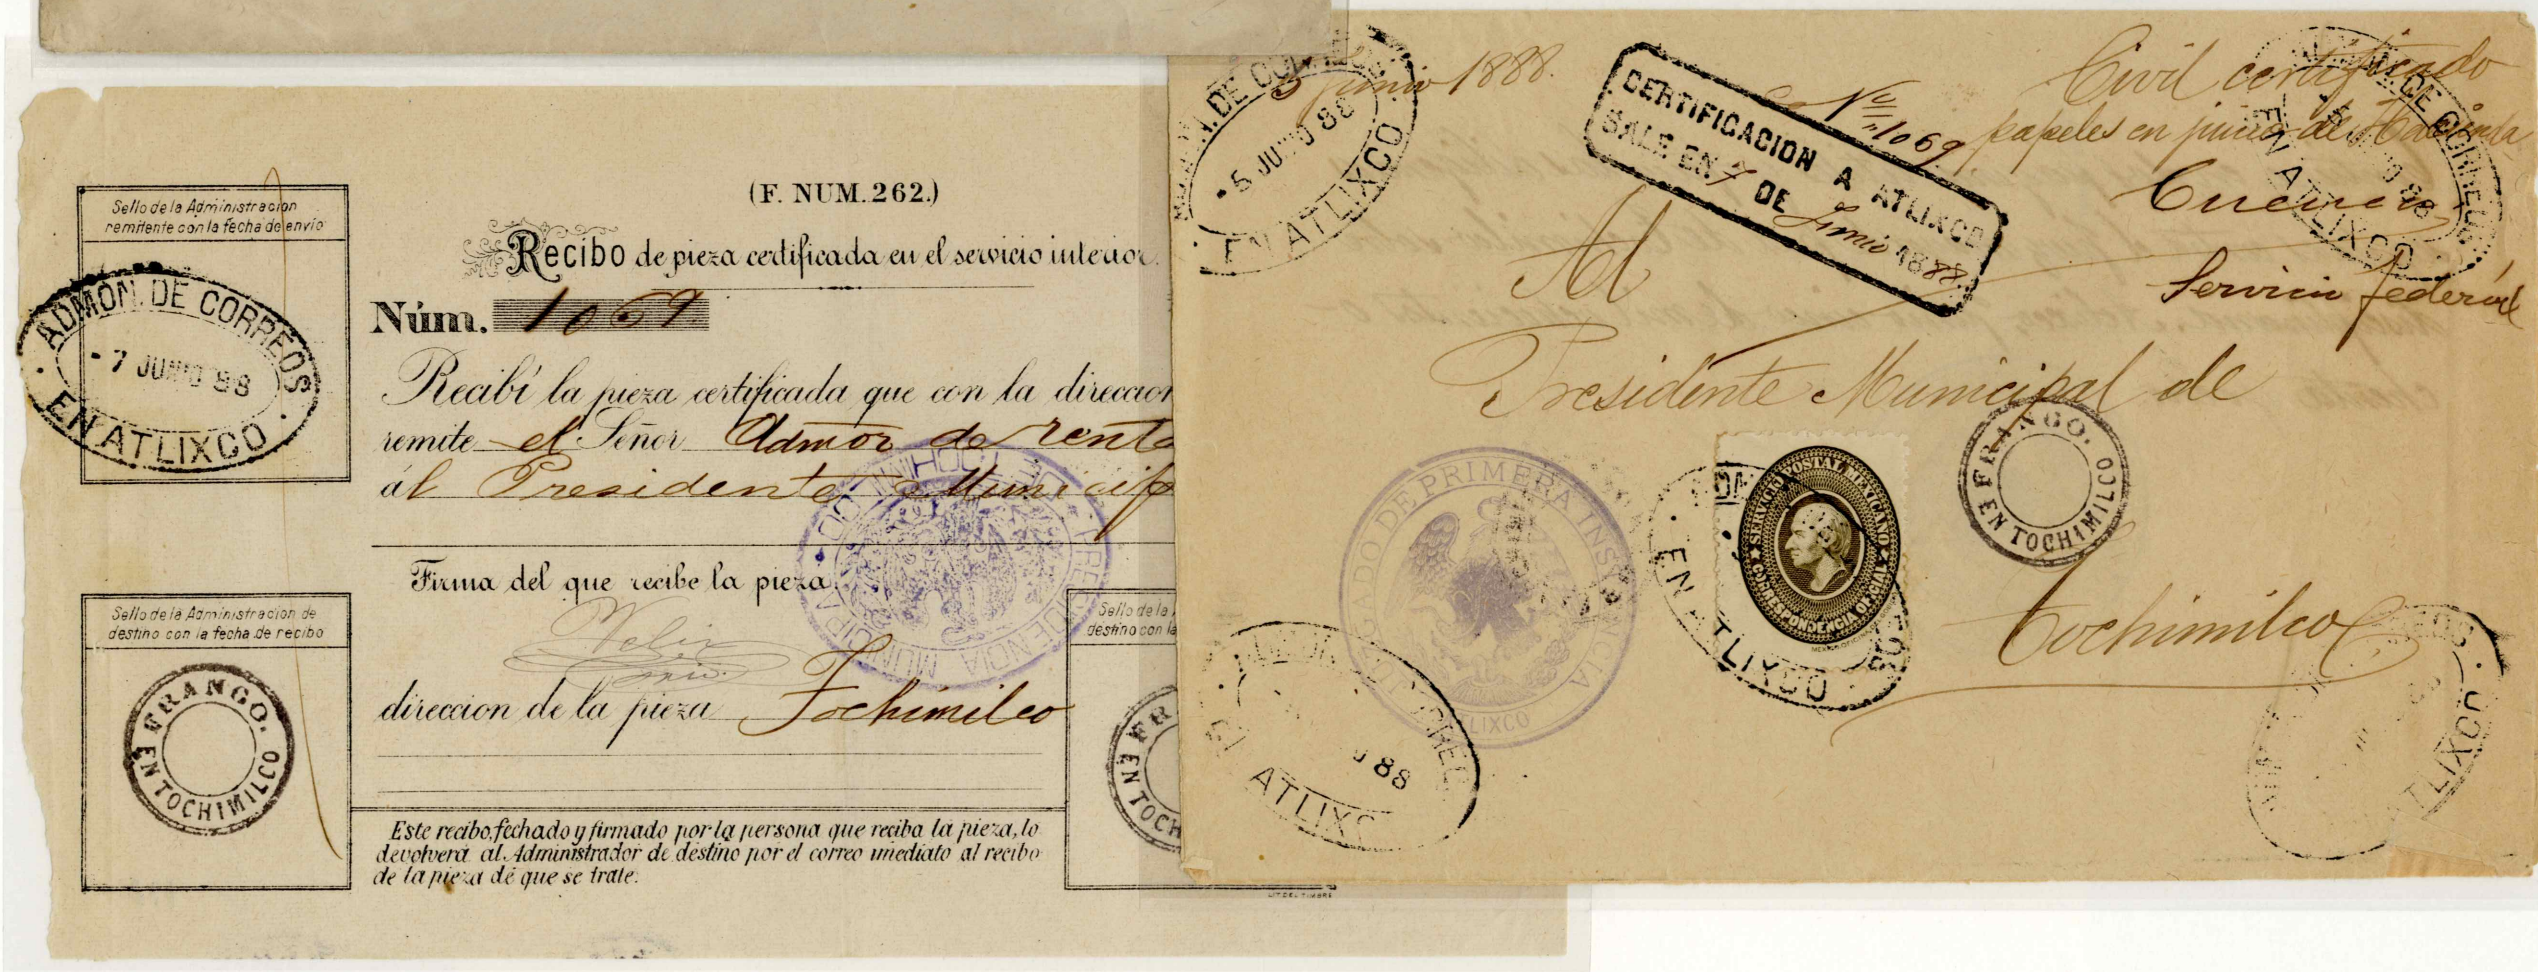 Sello de la Administracion
remitente con la fecha de envio
ADMON. DE CORREOS
- 7 JUNIO 88
EN ATLIXCO
(F. NUM. 262.)
Recibo de pieza certificada en el servicio interior.
Núm. 1069
Recibí la pieza certificada que con la direccion
remite el Señor Admor de renta
ál Presidente Municip
Firma del que recibe la pieza
PRESIDENCIA MUNICIPAL
TOCHIMILCO
direccion de la pieza Tochimilco
Sello de la Administracion de
destino con la fecha de recibo
FRANCO.
EN TOCHIMILCO
Sello de la
destino con la
FR
EN TOCH
Este recibo, fechado y firmado por la persona que reciba la pieza, lo
devolverá al Administrador de destino por el correo imediato al recibo
de la pieza de que se trate.
LIT. DEL TIMBRE
5 Junio 1888.
ADMON. DE CORREOS
- 5 JUNIO 88
EN ATLIXCO
CERTIFICACION A ATLIXCO
SALE EN 7 DE Junio 1888.
No 1069
Civil certificado
papeles en juicio de Hacienda
Servicio federal
ADMON. DE CORREOS
- 5 JUNIO 88
EN ATLIXCO
Al
Presidente Municipal de
Tochimilco
JUZGADO DE PRIMERA INSTANCIA
ATLIXCO
SERVICIO POSTAL MEXICANO
CORRESPONDENCIA OFICIAL
EN ATLIXCO
FRANCO.
EN TOCHIMILCO
ADMON. DE CORREOS
88
ATLIXCO
ATLIXCO